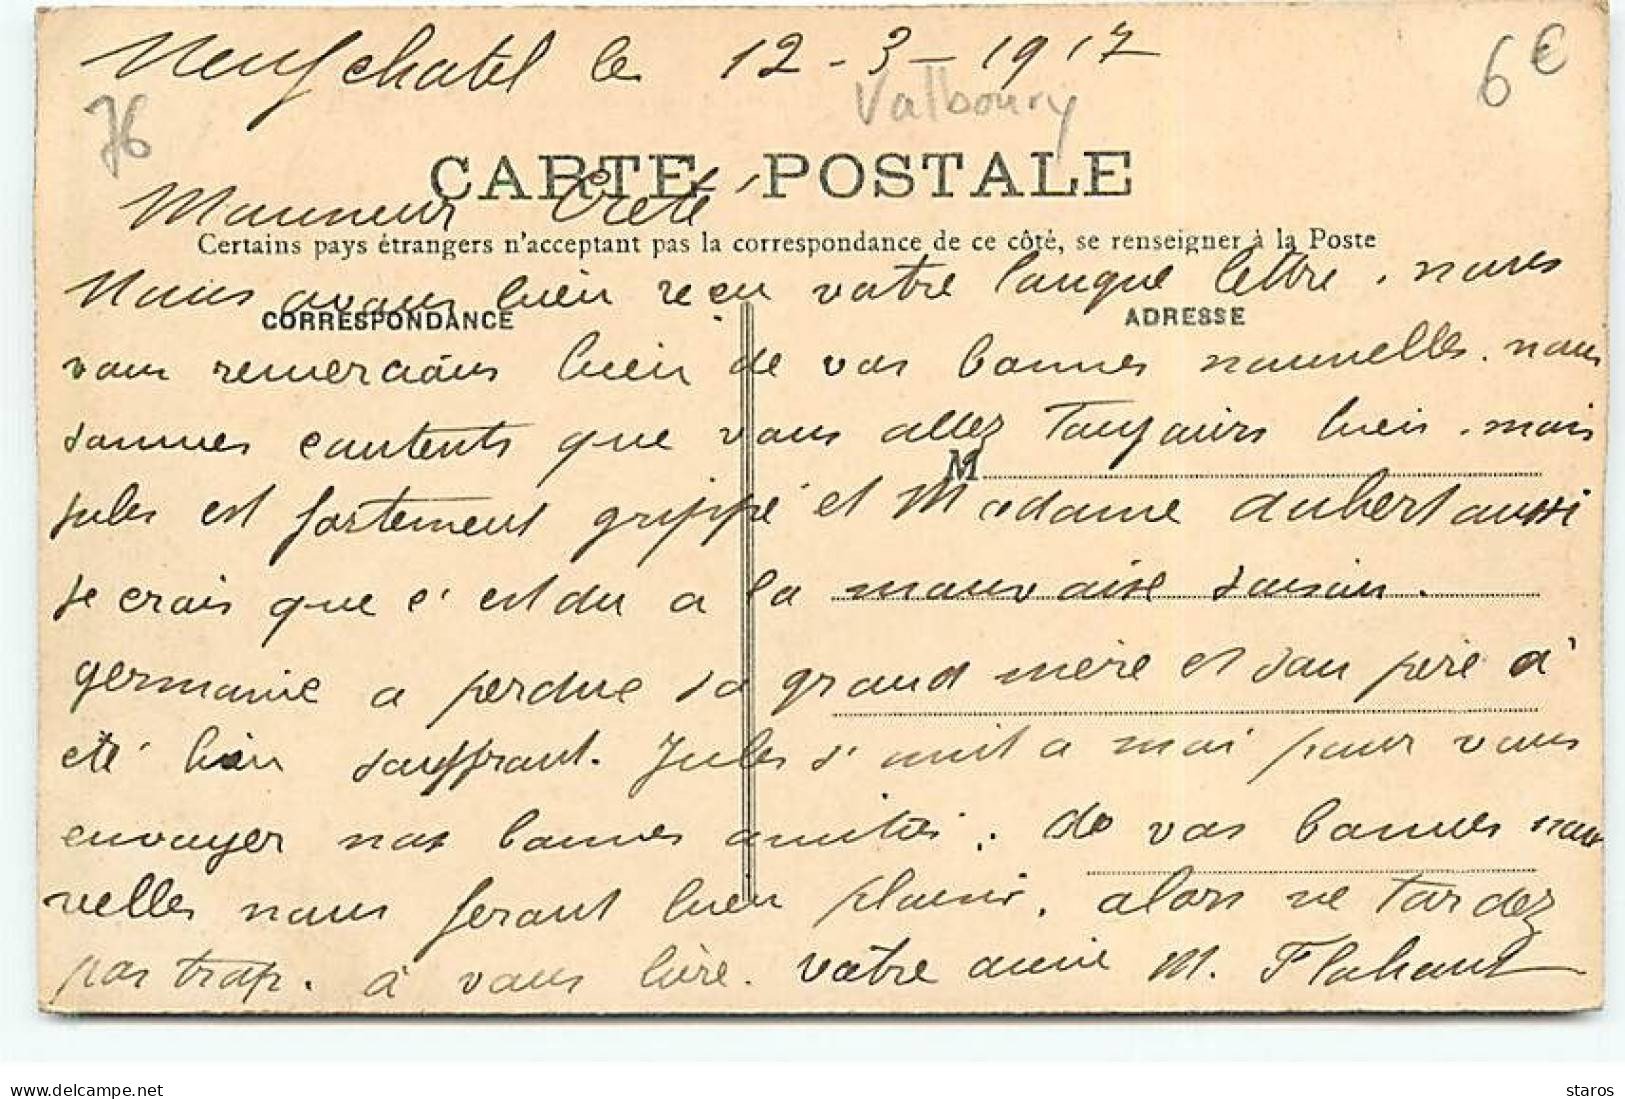 Neufchatel le 12-3-1917
Valboury
6€
76
CARTE POSTALE
Monsieur Creté
Certains pays étrangers n'acceptant pas la correspondance de ce côté, se renseigner à la Poste
Nous avons bien reçu votre longue lettre. nous
CORRESPONDANCE
ADRESSE
vous remercions bien de vos bonnes nouvelles. nous
sommes contents que vous allez Toujours bien. mais
M
jules est fortement grippé et Madame aubert aussi
je crois que c'est du a la mauvaise saison.
germaine a perdue sa grand mère et son père à
été bien souffrant. Jules s'unit a moi pour vous
envoyer nos bonnes amitiés. de vos bonnes nou
velles nous feront bien plaisir. alors ne Tardez
pas trop. à vous lire. votre amie M. Flahaut
www.delcampe.net
staros